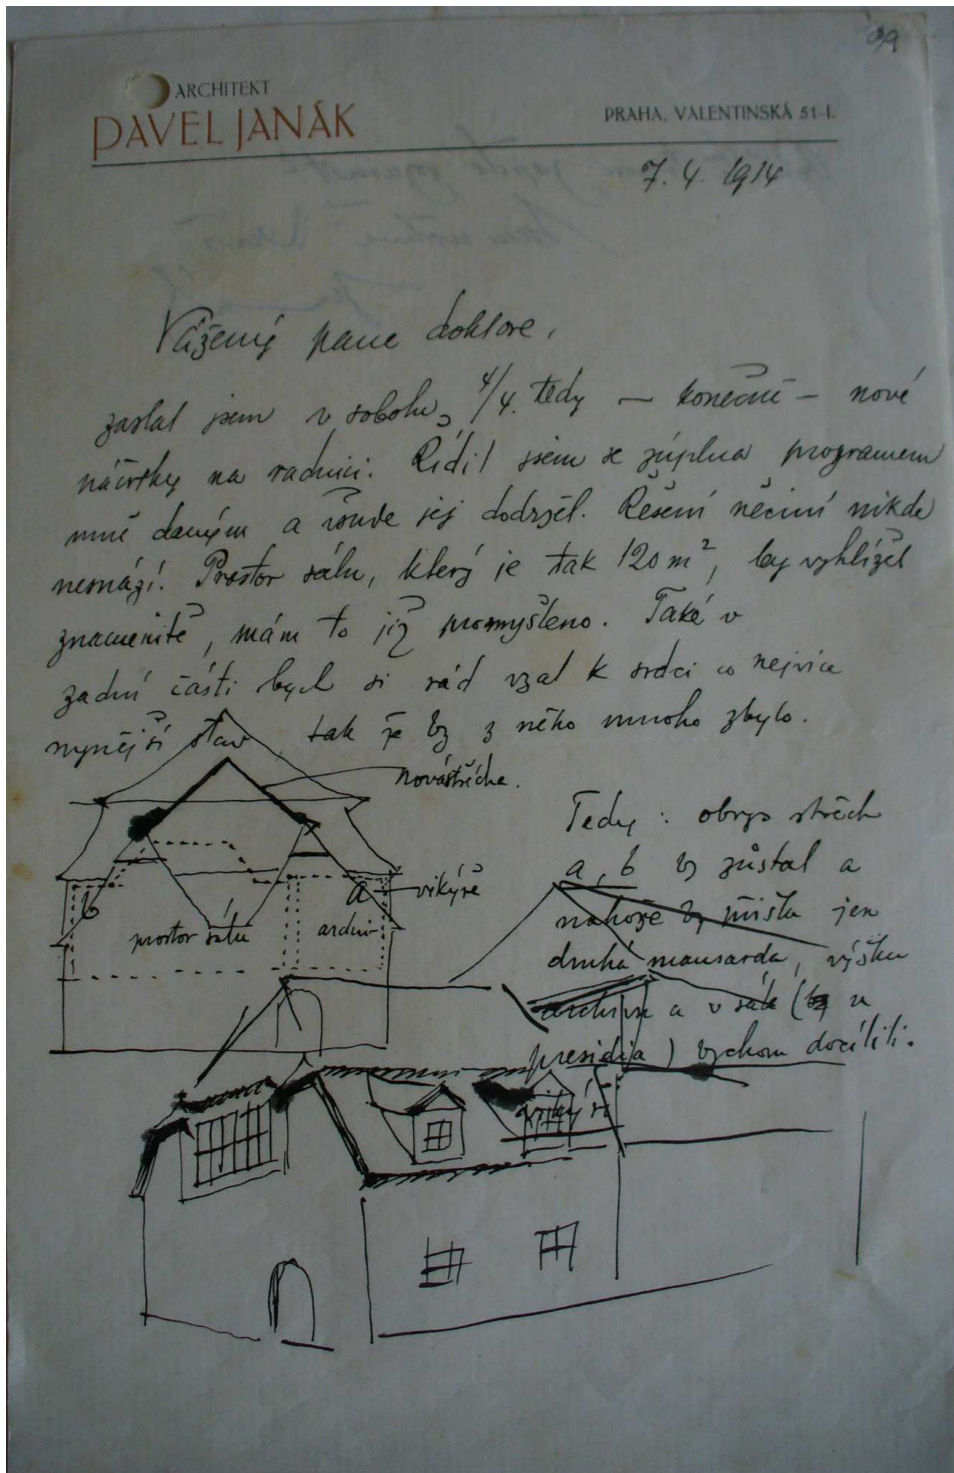 ARCHITEKT
PAVEL JANÁK
PRAHA, VALENTINSKÁ 51-I.
7. 4. 1914
Vážený pane doktore,
zaslal jsem v sobotu, 4/4. tedy — konečně — nové
náčrtky na radnici. Řídil jsem se zúplna programem
mně daným a všude jej dodržel. Řešení nečiní nikde
nesnází. Prostor sálu, který je tak 120 m², by vyhlížel
znamenitě, mám to již promyšleno. Také v
zadní části bych si rád vzal k srdci co nejvíce
nynější stav tak že by z něho mnoho zbylo.
nová střecha.
Tedy: obrys střech
a, b by zůstal a
a vikýře
b
nahoře by přišla jen
prostor sálu
archiv
druhá mansarda, výšku
archivu a v sále (u
presidia) bychom docílili.
vikýře